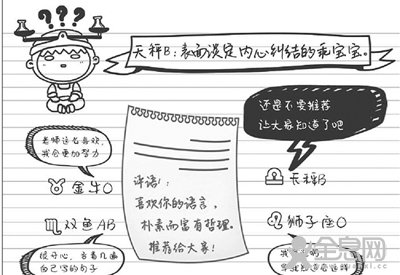 ???
天秤B:表面淡定内心纠结的乖宝宝。
老师这么喜欢,
我会更加努力
还是不要推荐
让大家知道了吧
金牛O
天秤B
评语:
喜欢你的语言,
朴素而富有哲理。
推荐给大家!
双鱼AB
狮子座O
自己写的句子